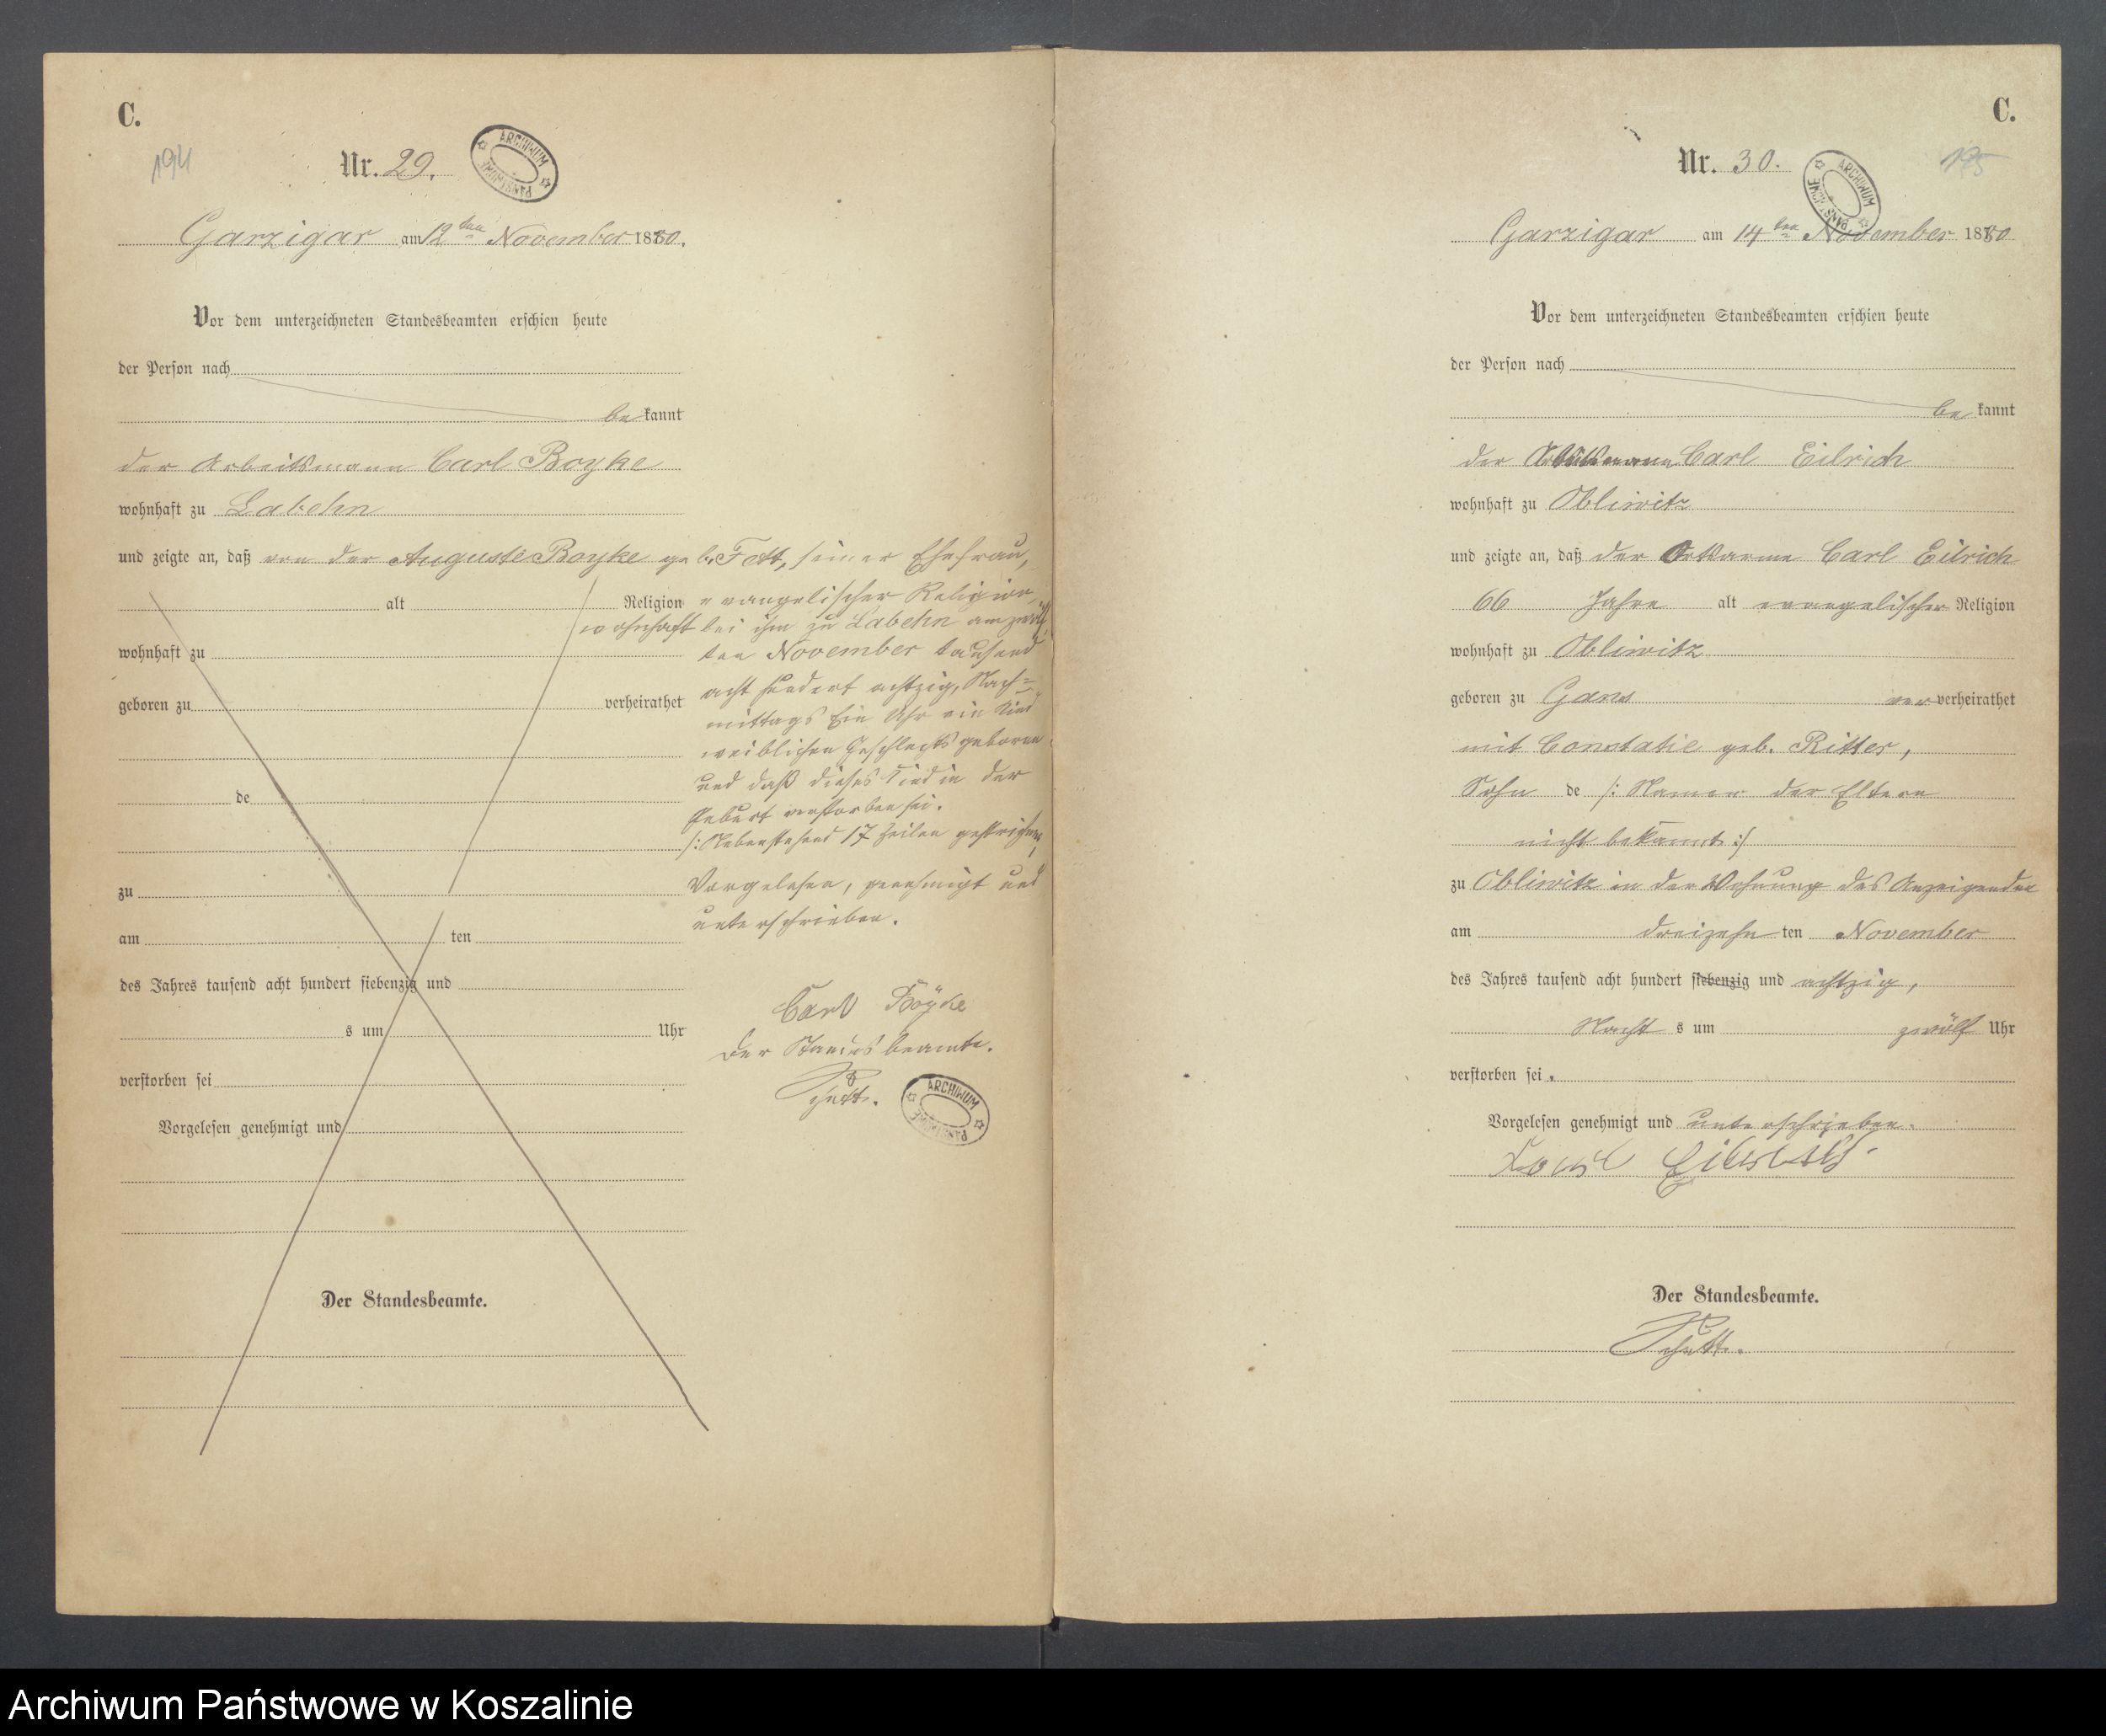 C.
194
Nr. 29.
ARCHIWUM PAŃSTWOWE
Garzigar am 12ten November 1880.
Vor dem unterzeichneten Standesbeamten erschien heute
der Person nach
be kannt
der Arbeitsmann Carl Boyke
wohnhaft zu Labehn
und zeigte an, daß von der Auguste Boyke geb. Fett, seiner Ehefrau,
alt Religion evangelischer Religion,
wohnhaft bei ihm zu Labehn am zwölf
wohnhaft zu ten November tausend
acht hundert achtzig, Nach=
geboren zu verheirathet mittags Ein Uhr ein Kind
weiblichen Geschlechts geboren
und daß dieses Kind in der
de
Geburt verstorben sei.
/: Nebenstehend 17 Zeilen gestrichen,
Vorgelesen, genehmigt und
zu
unterschrieben.
am ten
des Jahres tausend acht hundert siebenzig und
Carl Böyke
s um Uhr
Der Standesbeamte.
verstorben sei
Schütt.
ARCHIWUM PAŃSTWOWE
Vorgelesen genehmigt und
Der Standesbeamte.
C.
195
Nr. 30.
ARCHIWUM PAŃSTWOWE
Garzigar am 14ten November 1880
Vor dem unterzeichneten Standesbeamten erschien heute
der Person nach
be kannt
der Arbeitsmann Carl Eilrich
wohnhaft zu Obliwitz
und zeigte an, daß der Ortsarme Carl Eilrich
66 Jahre alt evangelischer Religion
wohnhaft zu Obliwitz
geboren zu Gans ver verheirathet
mit geb. Ritter,
Sohn de /: Namen der Eltern
nicht bekannt :/
zu Obliwitz in der Wohnung des Anzeigenden
am dreizehn ten November
des Jahres tausend acht hundert siebenzig und achtzig,
Nacht s um zwölf Uhr
verstorben sei.
Vorgelesen genehmigt und unterschrieben.
Karl Eilrich
Der Standesbeamte.
Schütt.
Archiwum Państwowe w Koszalinie